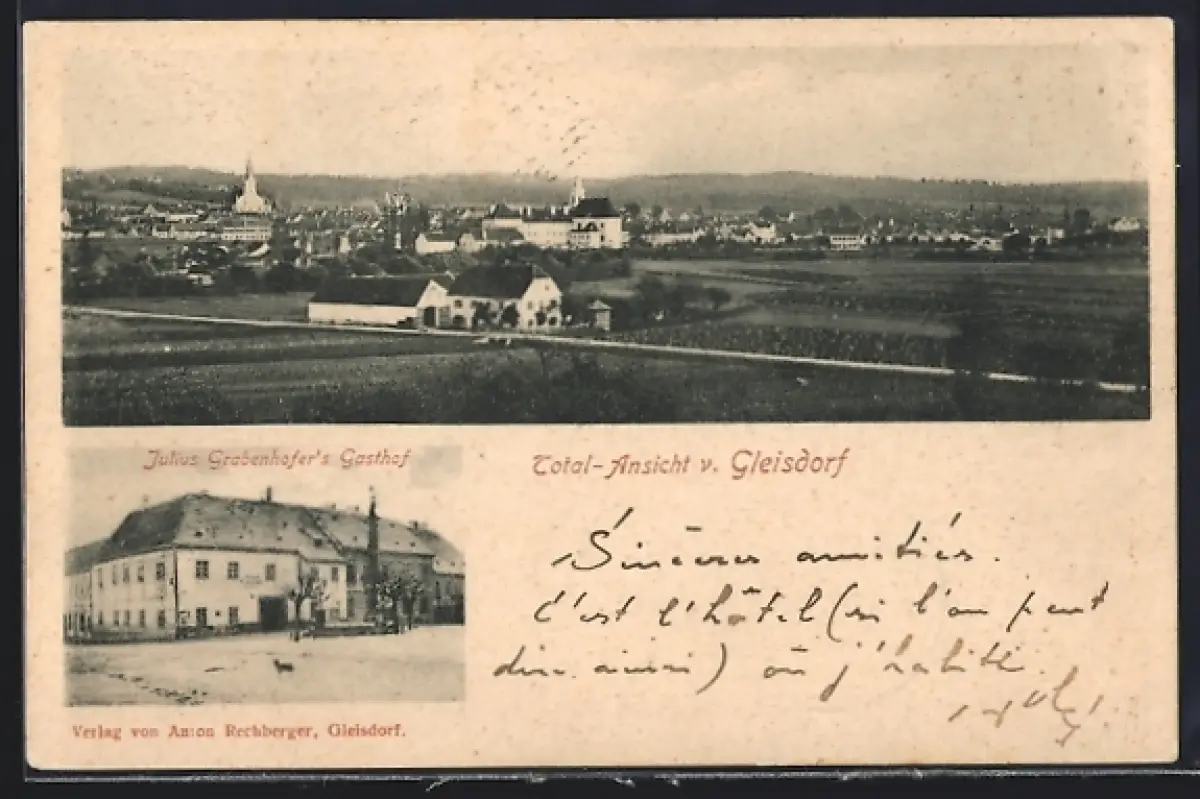 Julius Grabenhofer's Gasthof
Total-Ansicht v. Gleisdorf
Sincères amitiés.
C'est l'hôtel (si l'on peut
dire ainsi) où j'habite.
Verlag von Anton Rechberger, Gleisdorf.